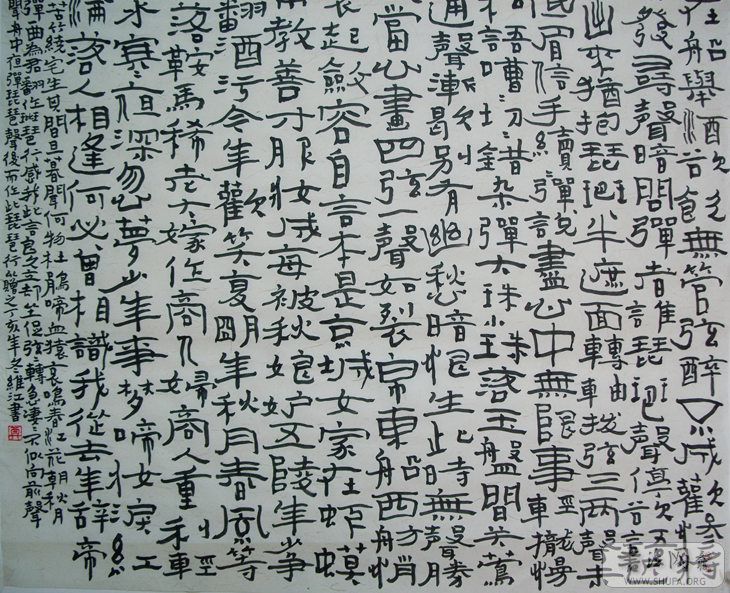 船舉酒欲飲無管弦醉不成歡慘
發尋聲暗問彈者誰琵琶聲停欲語
出來猶抱琵琶半遮面轉軸撥弦三兩聲未
眉信手續續彈說盡心中無限事輕攏慢
語嘈切錯雜彈大珠小珠落玉盤間關鶯
通聲漸歇別有幽愁暗恨生此時無聲勝
當心畫四弦一聲如裂帛東船西舫悄
衣起斂容自言本是京城女家在蝦蟆
教善才服妝成每被秋娘妒五陵年少爭
翻酒污今年歡笑復明年秋月春風等
落鞍馬稀老大嫁作商人婦商人重利輕
水寒夜深忽夢少年事夢啼妝淚紅
淪落人相逢何必曾相識我從去年辭帝
苦竹繞宅生其間旦暮聞何物杜鵑啼血猿哀鳴春江花朝秋月
彈曲為君翻作琵琶行感我此言良久立卻坐促弦轉急淒淒不似向前聲
聞舟中夜彈琵琶聲後而作此琵琶行贈之丁亥年冬維江書
WWW.SHUFA.ORG